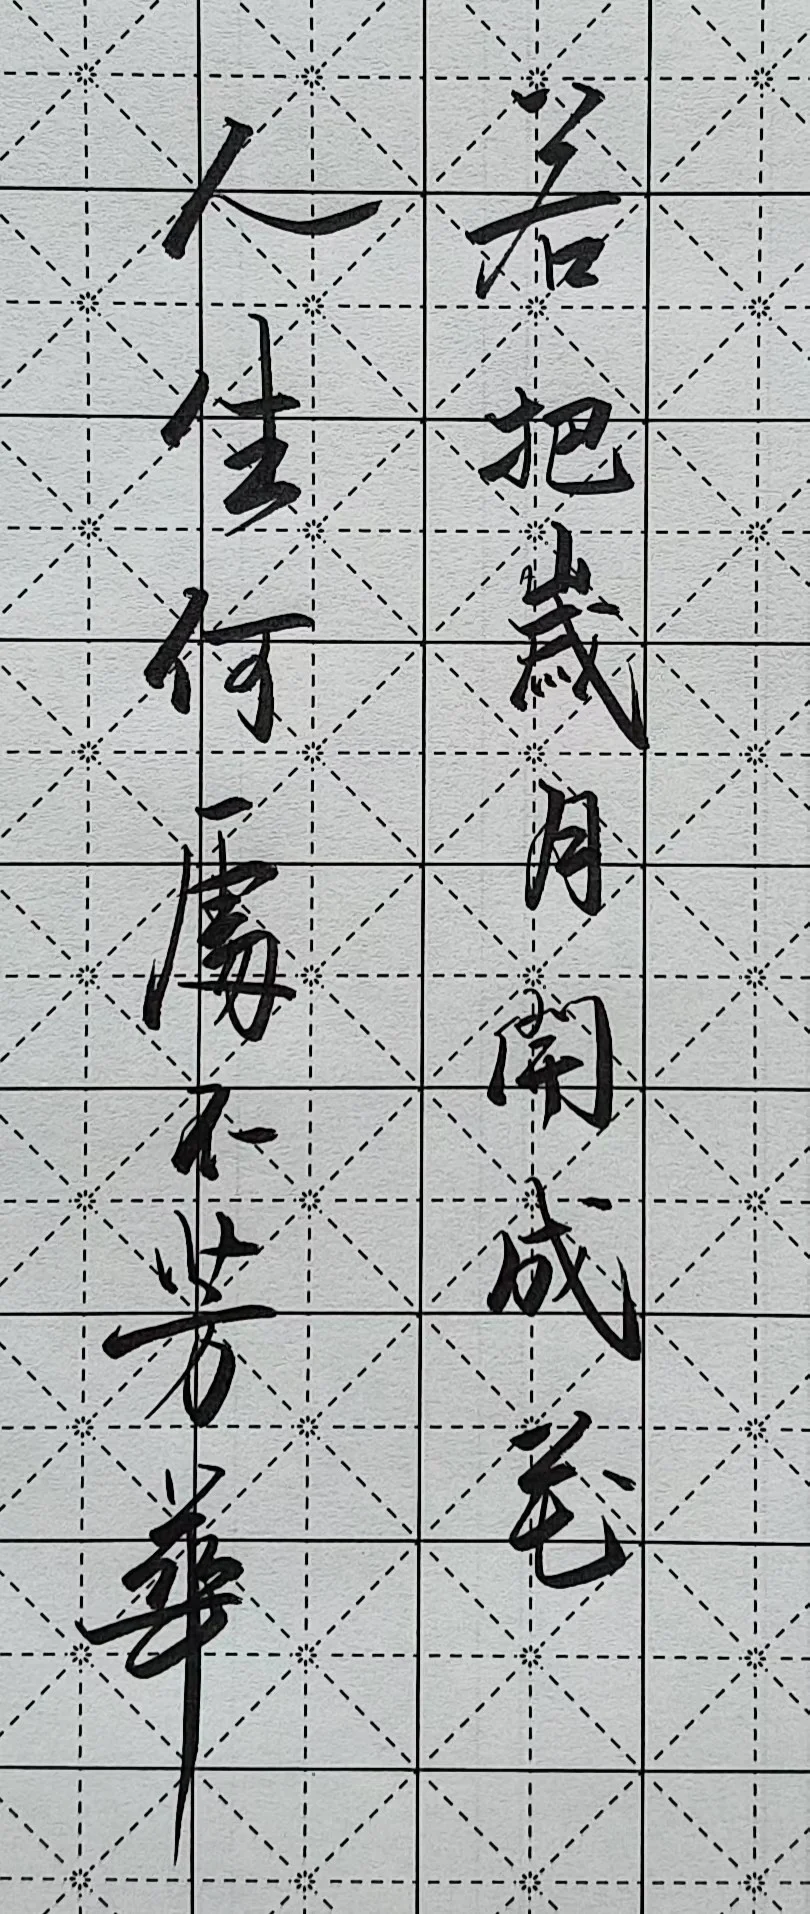 若把歲月開成花
人生何處不芳華